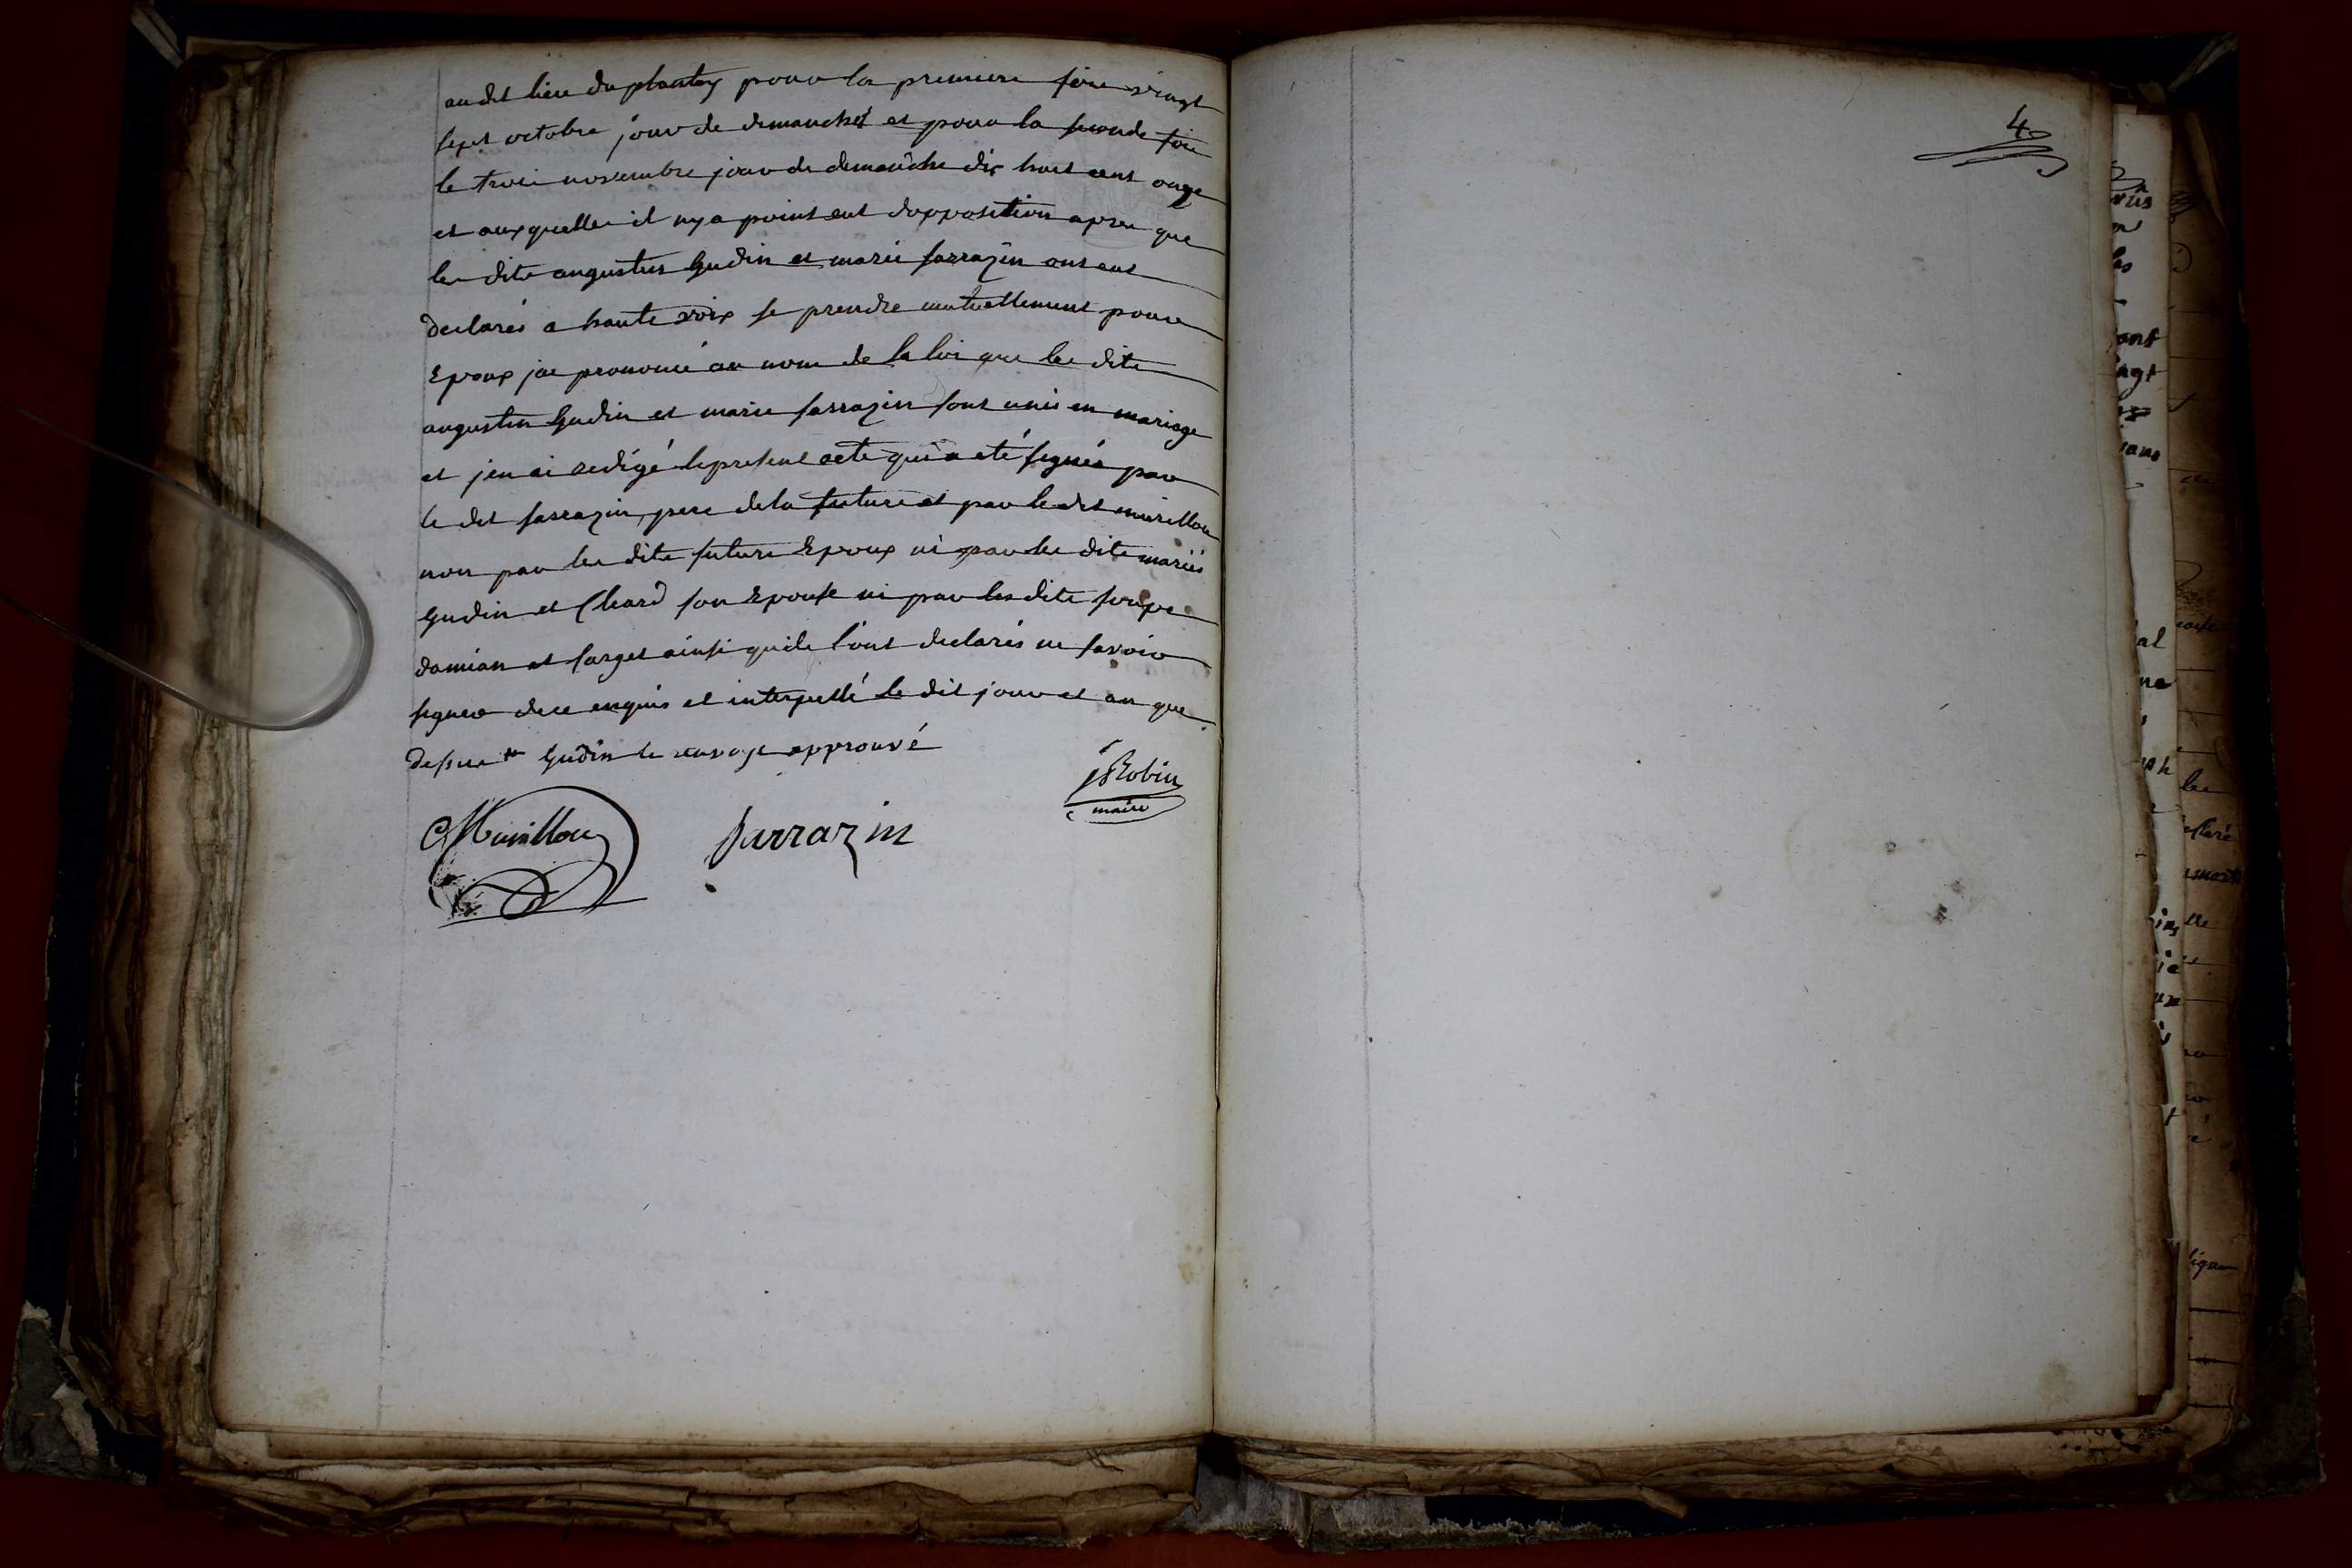 au dit lieu du plantay pour la premiere fois vingt
sept octobre jour de dimanche et pour la seconde fois
le trois novembre jour de dimanche dix huit cent onze
et auxquelles il ny a point eut dopposition apres que
les dits augustin Gudin et marie sarrazin ont eut
declarés a haute voix se prendre mutuellement pour
Epoux jai prononcé au nom de la loi que les dits
augustin Gudin et marie sarrazin sont unis en mariage
et jen ai redigé le present acte qui a été signés par
le dit sarrazin, pere de la future et par le dit
non par les dits futurs Epoux ni par les dits mariés
Gudin et Chard son Epouse ni par les dits
damian et farget ainsi quils l'ont declarés ne savoir
signer de ce enquis et interpellé le dit jour et an que
dessus Gudin le renvoye approuvé
Robin
maire
Sarrazin
4